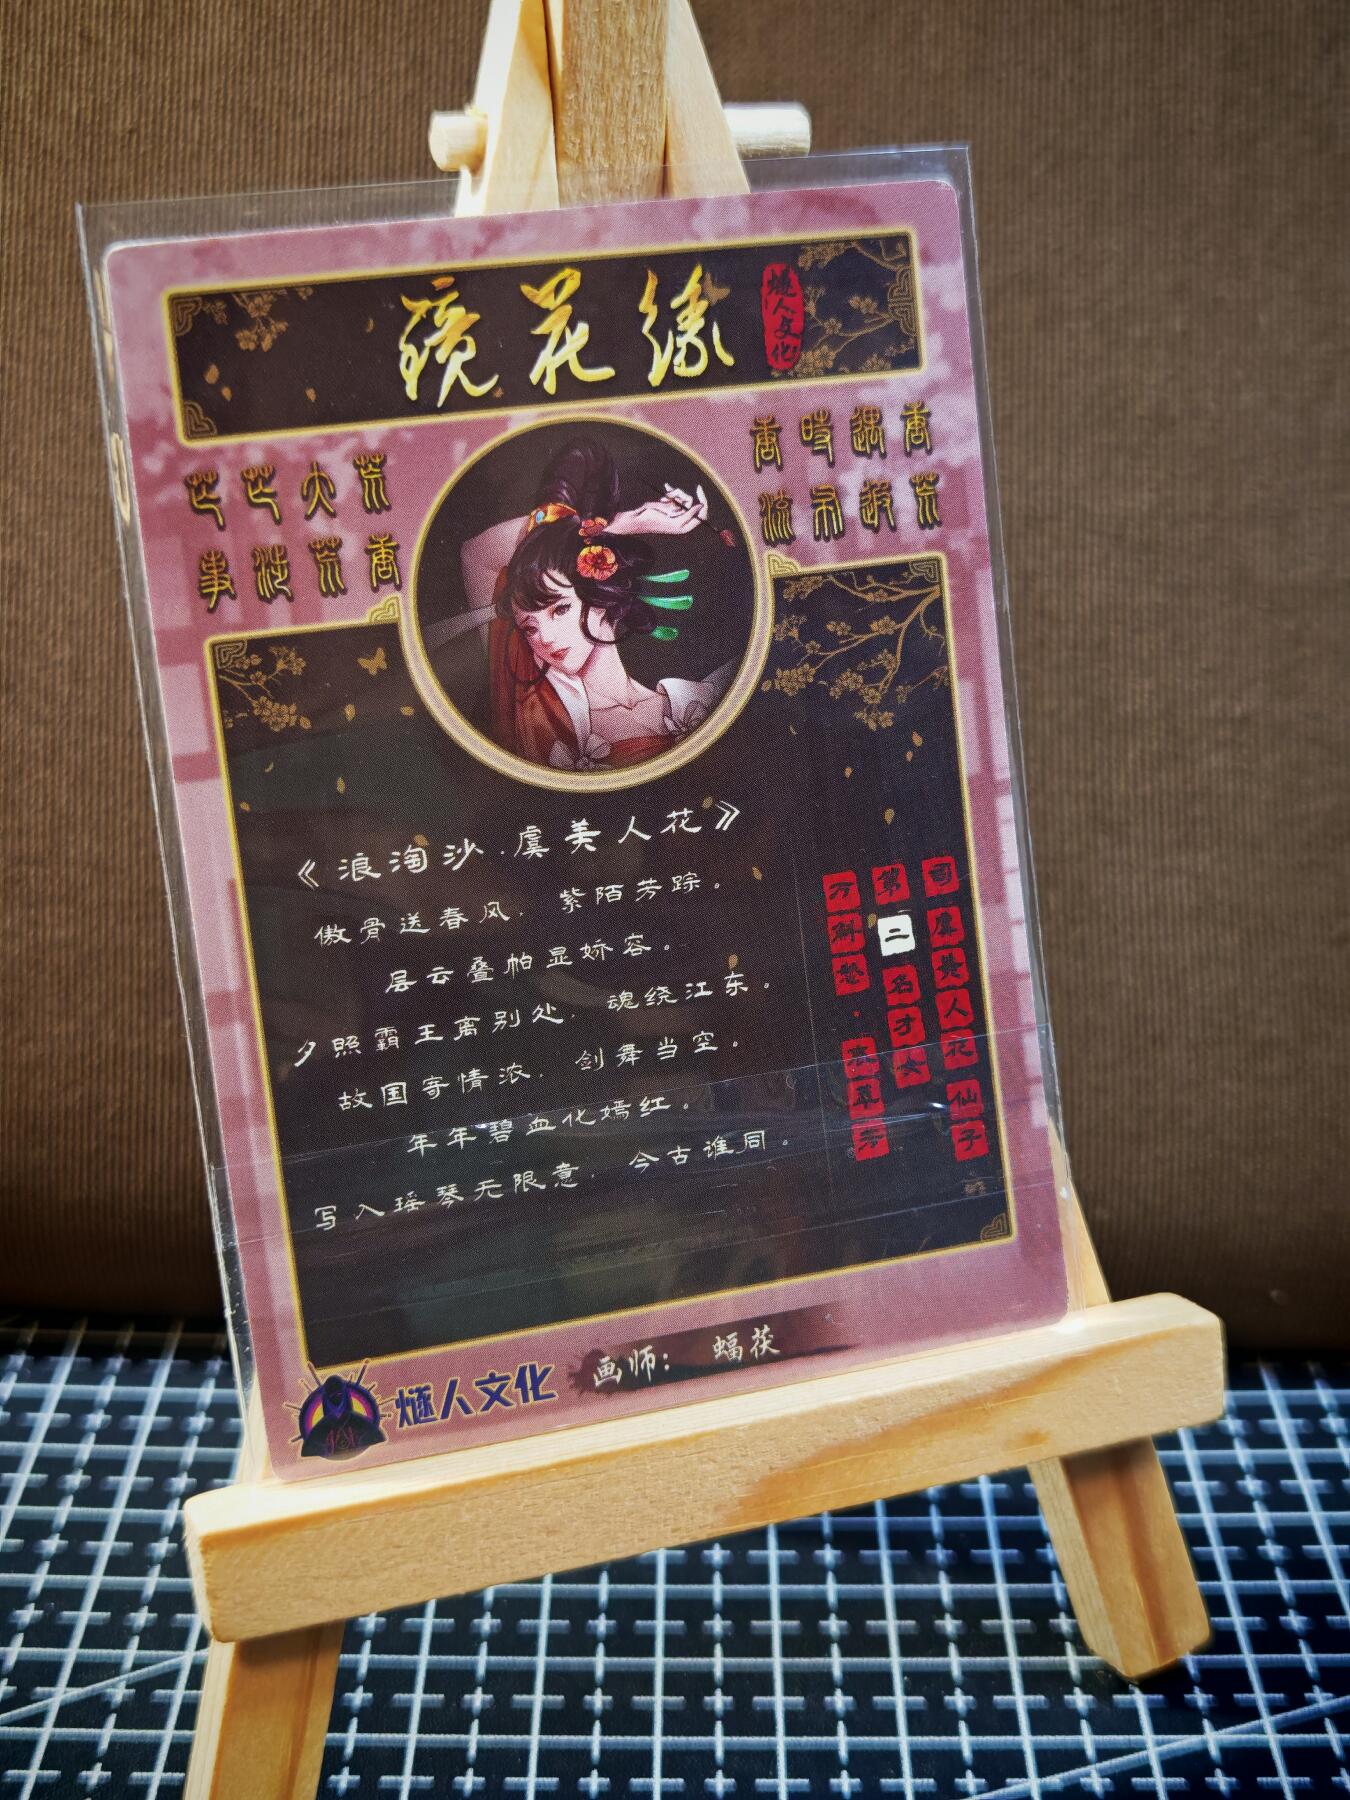 镜花缘
燧人文化
芒芒大荒
事涉荒唐
唐时遇唐
流布遐荒
《浪淘沙·虞美人花》
傲骨送春风，紫陌芳踪。
层云叠帕显娇容。
夕照霸王离别处，魂绕江东。
故国寄情浓，剑舞当空。
年年碧血化嫣红。
写入瑶琴无限意，今古谁同。
司虞美人花仙子
第二名才女
万斛愁·哀萃芳
燧人文化
画师：蝠茯